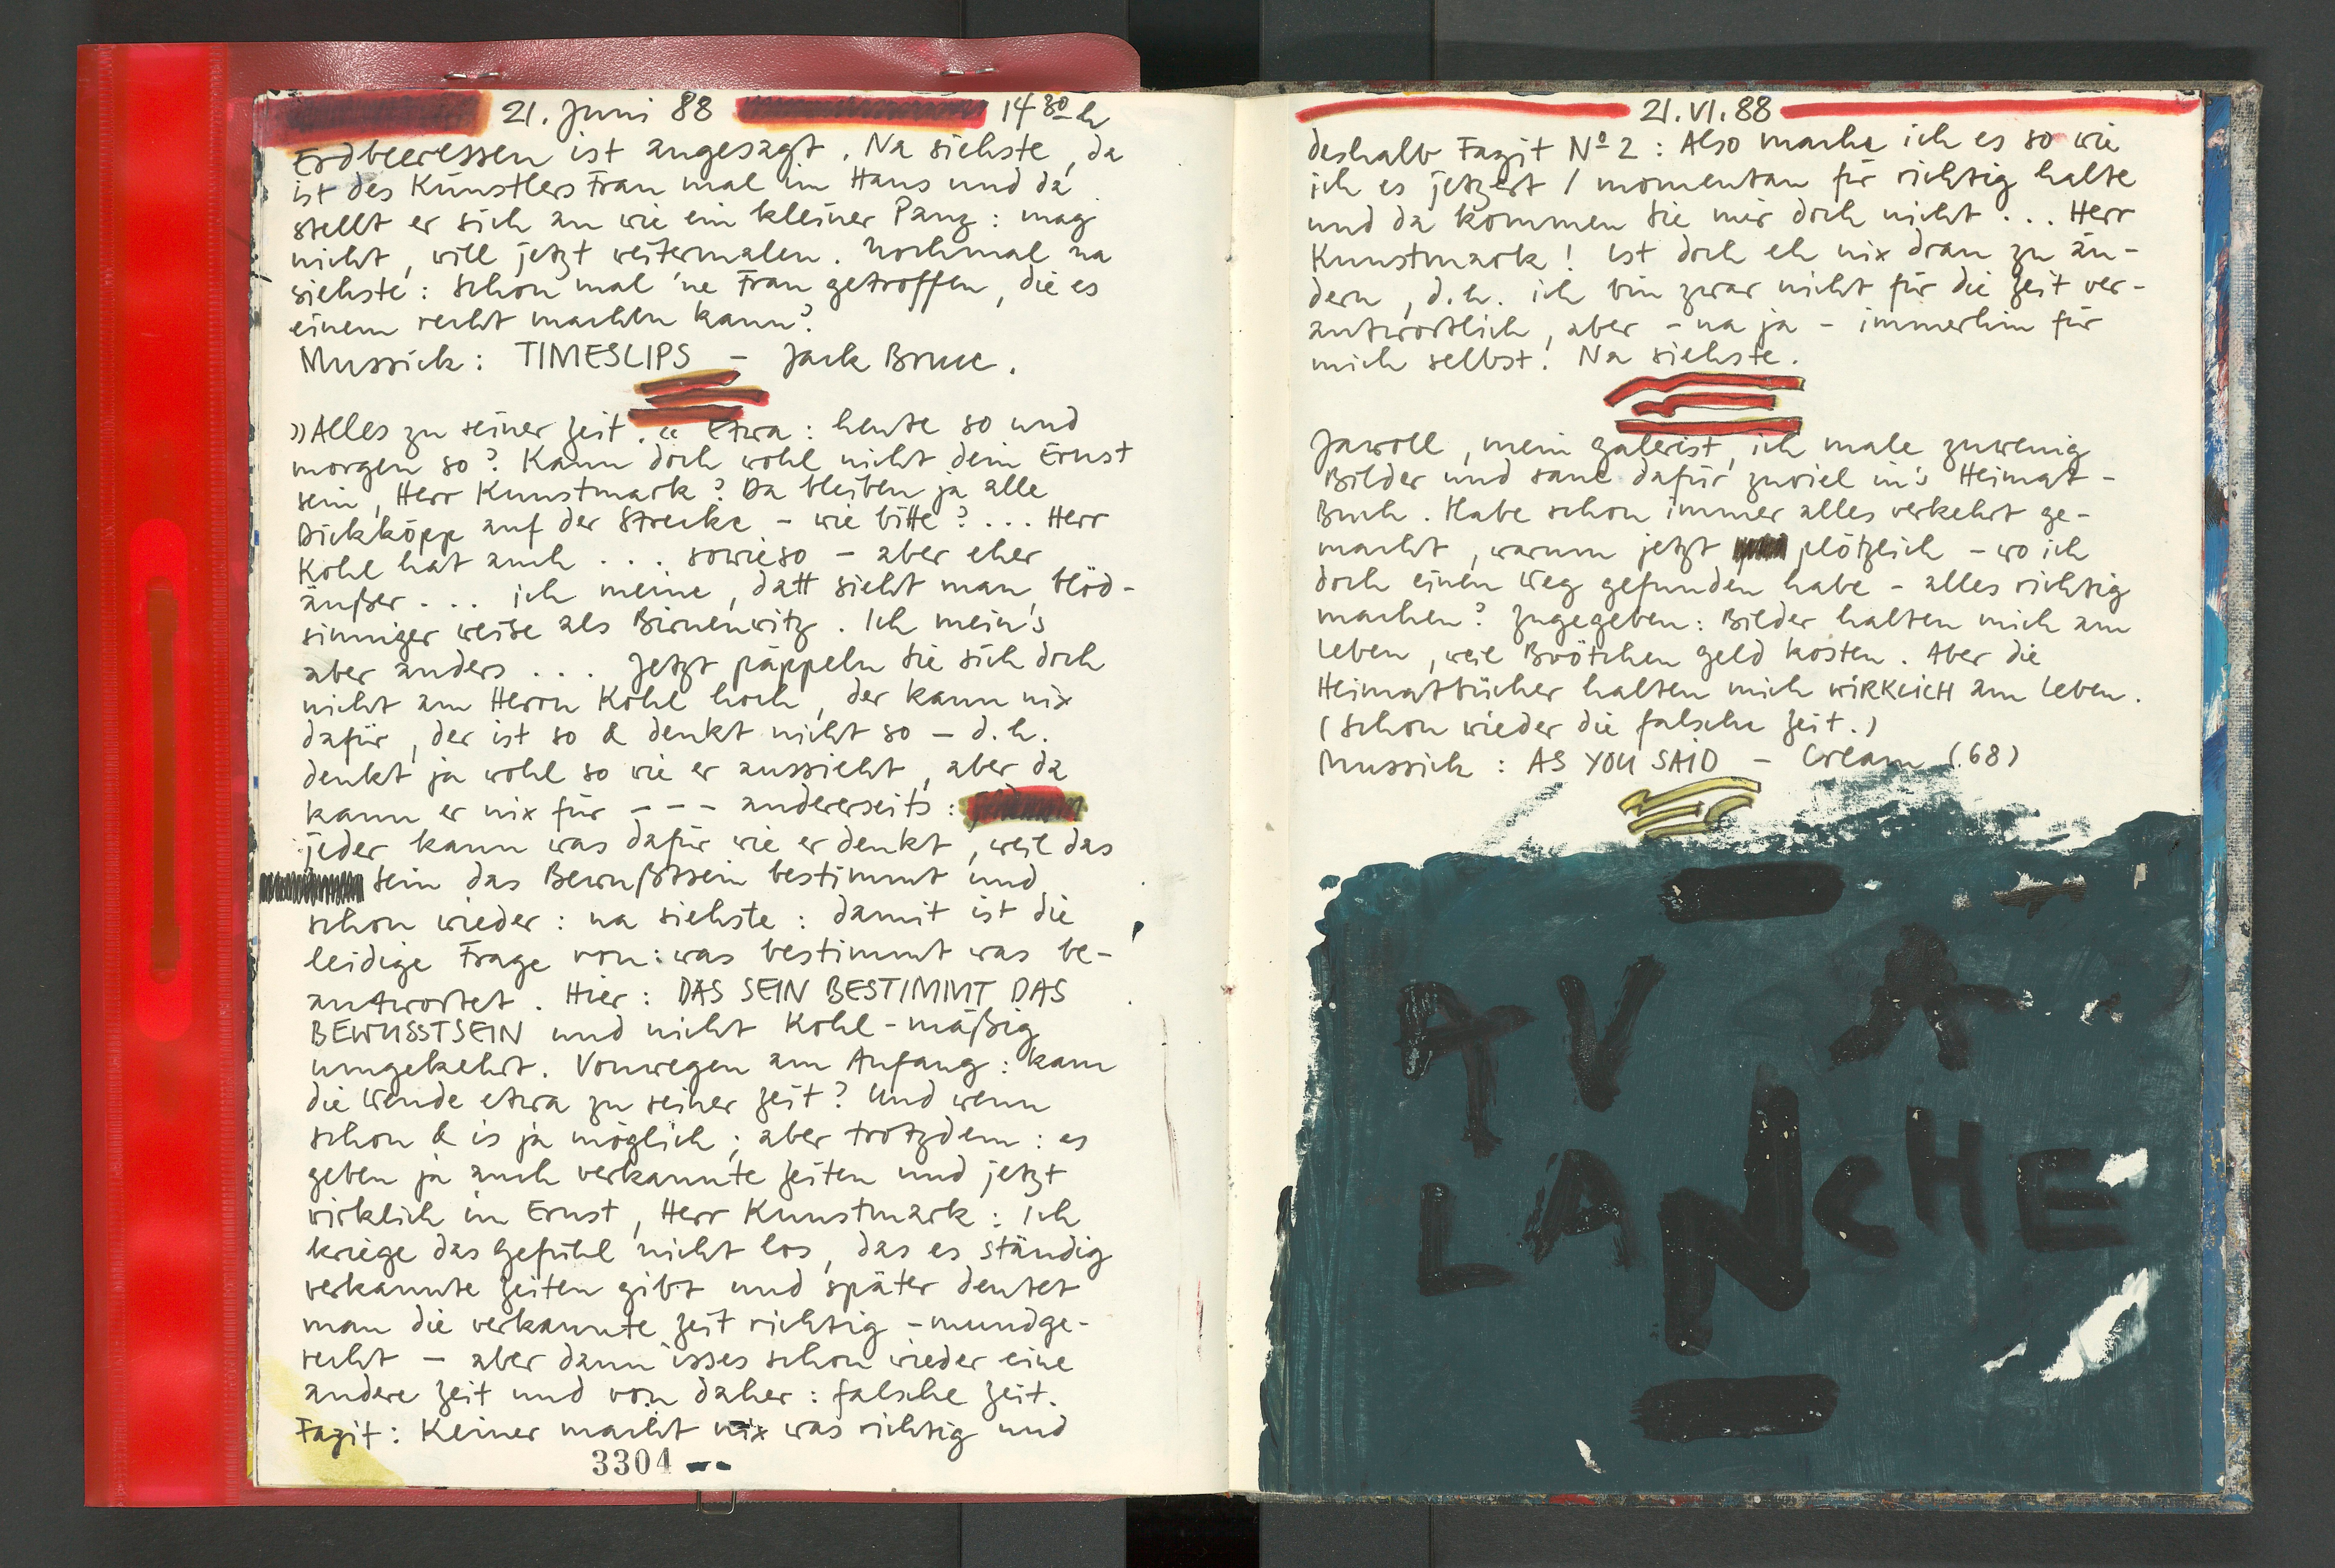 21. Juni 88 14 30 h
Erdbeeressen ist angesagt. Na siehste, da
ist des Künstlers Frau mal im Haus und da
stellt er sich an wie ein kleiner Panz: mag
nicht, will jetzt weitermalen. Nochmal na
siehste: schon mal 'ne Frau getroffen, die es
einem recht machen kann?
Mussick: TIMESLIPS – Jack Bruce.
»Alles zu seiner Zeit.« Etwa: heute so und
morgen so? Kann doch wohl nicht dein Ernst
sein, Herr Kunstmark? Da bleiben ja alle
Dickköpp auf der Strecke – wie bitte? ... Herr
Kohl hat auch ... sowieso – aber eher
äußer ... ich meine, datt sieht man, blöd-
sinniger weise als Birnenwitz. Ich mein's
aber anders .... Jetzt päppeln Sie sich doch
nicht am Herrn Kohl hoch, der kann nix
dafür, der ist so & denkt nicht so – d.h.
denkt ja wohl so wie er aussieht, aber da
kann er nix für – – – andererseits:
jeder kann was dafür wie er denkt, weil das
Sein das Bewußtsein bestimmt und
schon wieder: na siehste: damit ist die
leidige Frage von: was bestimmt was be-
antwortet. Hier: DAS SEIN BESTIMMT DAS
BEWUSSTSEIN und nicht Kohl-mäßig
umgekehrt. Vonwegen am Anfang: kam
die Wende etwa zu seiner Zeit? Und wenn
schon & is ja möglich; aber trotzdem: es
geben ja auch verkannte Zeiten und jetzt
wirklich im Ernst, Herr Kunstmark: Ich
kriege das Gefühl nicht los, das es ständig
verkannte Zeiten gibt und später deutet
man die verkannte Zeit richtig – mundge-
recht – aber dann isses schon wieder eine
andere Zeit und von daher: falsche Zeit.
Fazit: Keiner macht nix was richtig und
3304
21.VI.88
deshalb Fazit Nº 2: Also mache ich es so wie
ich es jetzert / momentan für richtig halte
und da kommen Sie mir doch nicht ... Herr
Kunstmark! Ist doch eh nix dran zu än-
dern, d.h. ich bin zwar nicht für die Zeit ver-
antwortlich, aber – na ja – immerhin für
mich selbst! Na siehste.
Jawoll, mein Galerist, ich male zuwenig
Bilder und saue dafür zuviel in's Heimat-
Buch. Habe schon immer alles verkehrt ge-
macht, warum jetzt plötzlich – wo ich
doch einen Weg gefunden habe – alles richtig
machen? Zugegeben: Bilder halten mich am
Leben, weil Brötchen Geld kosten. Aber die
Heimatbücher halten mich WIRKLICH am Leben.
(Schon wieder die falsche Zeit.)
Mussick: AS YOU SAID – Cream (68)
AVA
LANCHE